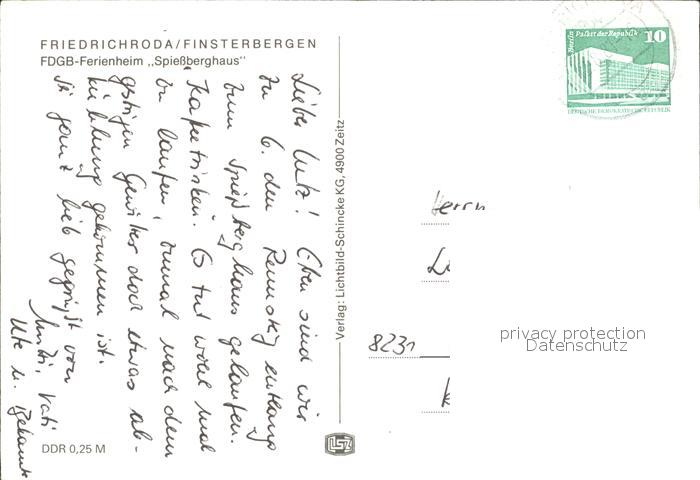 FRIEDRICHRODA/FINSTERBERGEN
FDGB-Ferienheim „Spießberghaus"
Lieber Lutz! Eben sind wir
zu 6. den Rennsteig entlang
zum Spießberghaus gelaufen.
Es tut wohl mal
zu laufen, zumal nach dem
gestrigen Gewitter doch etwas ab-
kühlung gekommen ist.
Sei ganz lieb gegrüßt von
Mutti, Vati
Ute u.
DDR 0,25 M
Verlag: Lichtbild-Schincke KG, 4900 Zeitz
LSZ
Berlin Palast der Republik 10
DEUTSCHE DEMOKRATISCHE REPUBLIK
Herrn
8231
privacy protection
Datenschutz